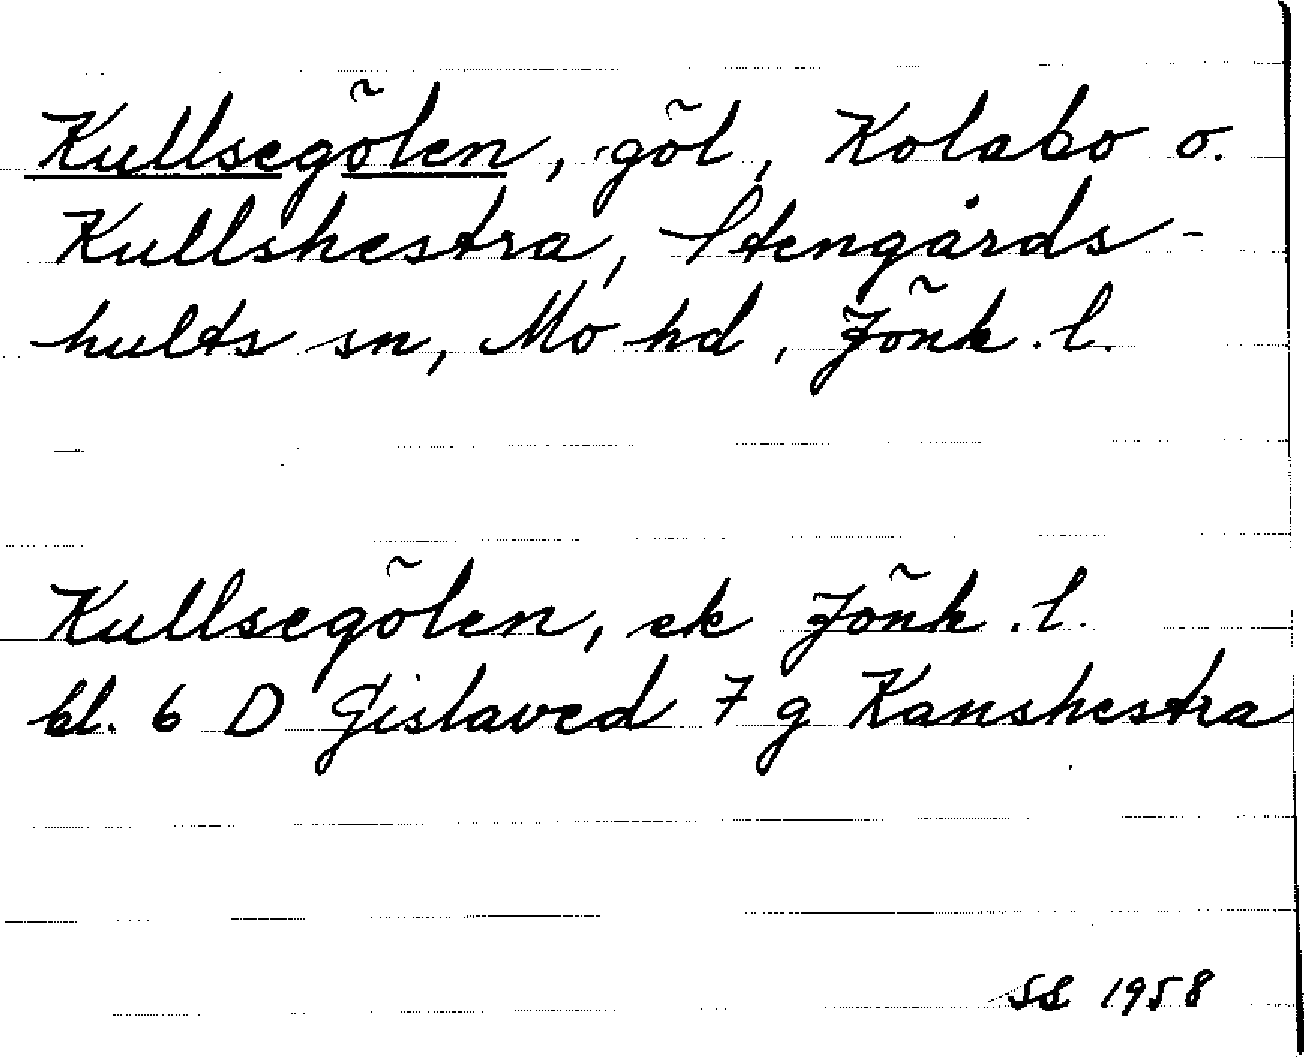 Kullsegölen, göl, Kolabo o.
Kullshestra, Stengårds-
hults sn, Mo hd, Jönk.l.
Kullsegölen, ek Jönk.l.
bl. 6 D Gislaved 7 g Kanshestra
SL 1958